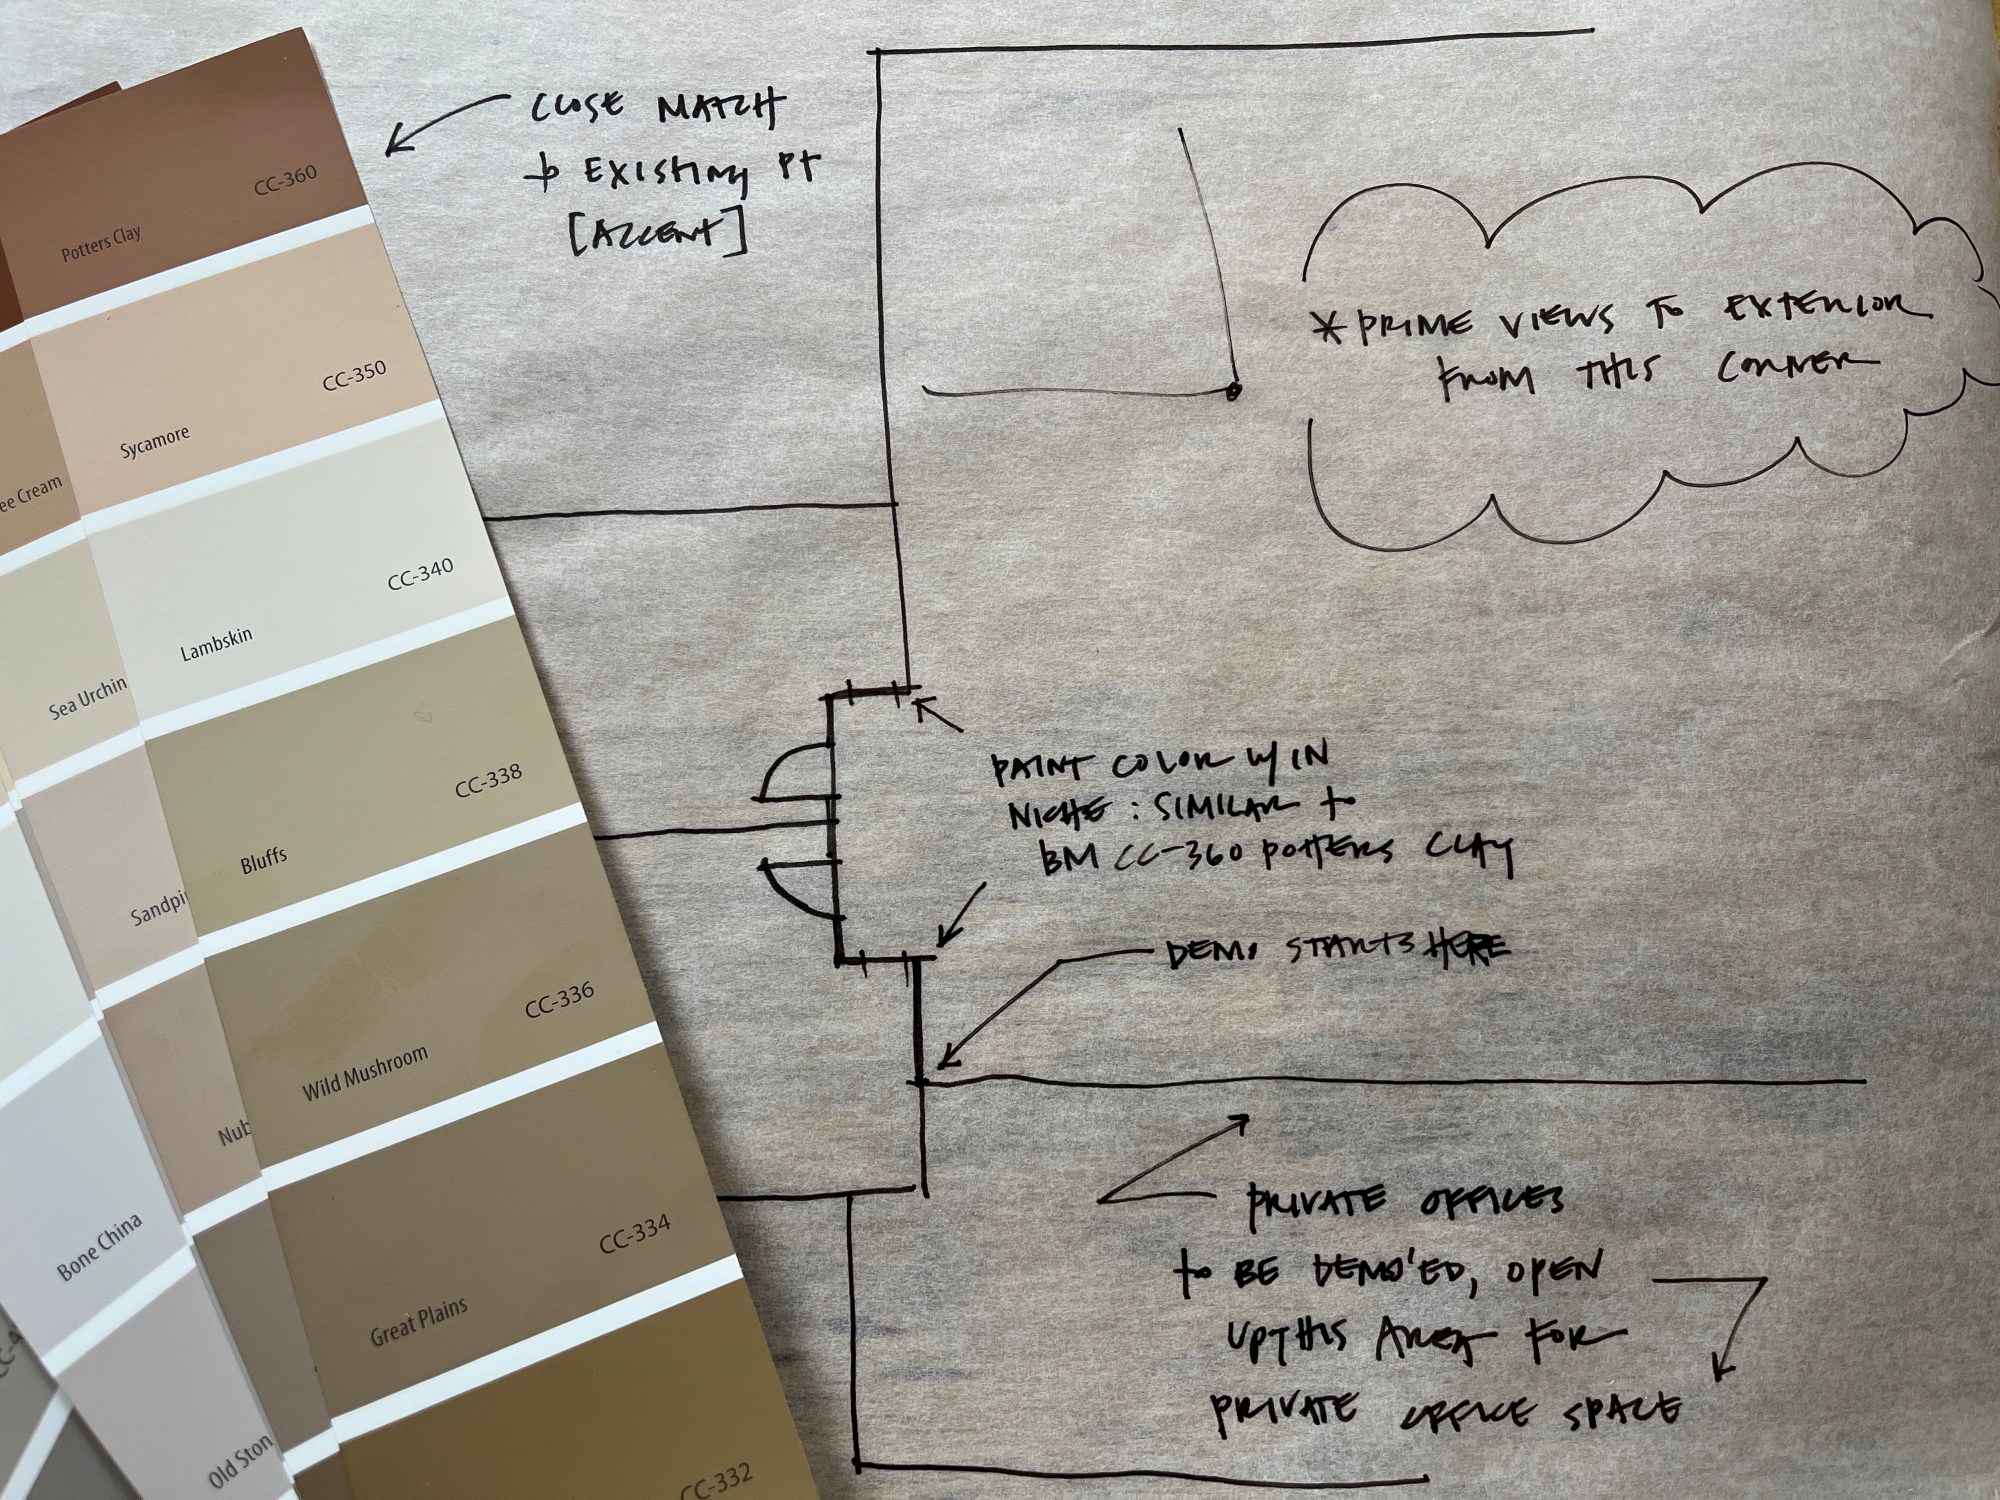 CC-360
Potters Clay
CC-350
Sycamore
CC-340
Lambskin
CC-338
Bluffs
CC-336
Wild Mushroom
CC-334
Great Plains
CC-332
ee Cream
Sea Urchin
Sandpi
Nub
Bone China
Old Ston
CC-4
CLOSE MATCH
to EXISTING PT
[ACCENT]
* PRIME VIEWS TO EXTERIOR
FROM THIS CORNER
PAINT COLOR W/IN
NICHE : SIMILAR to
BM CC-360 POTTERS CLAY
DEMO STARTS HERE
PRIVATE OFFICES
to BE DEMO'ED, OPEN
UP THIS AREA FOR
PRIVATE OFFICE SPACE